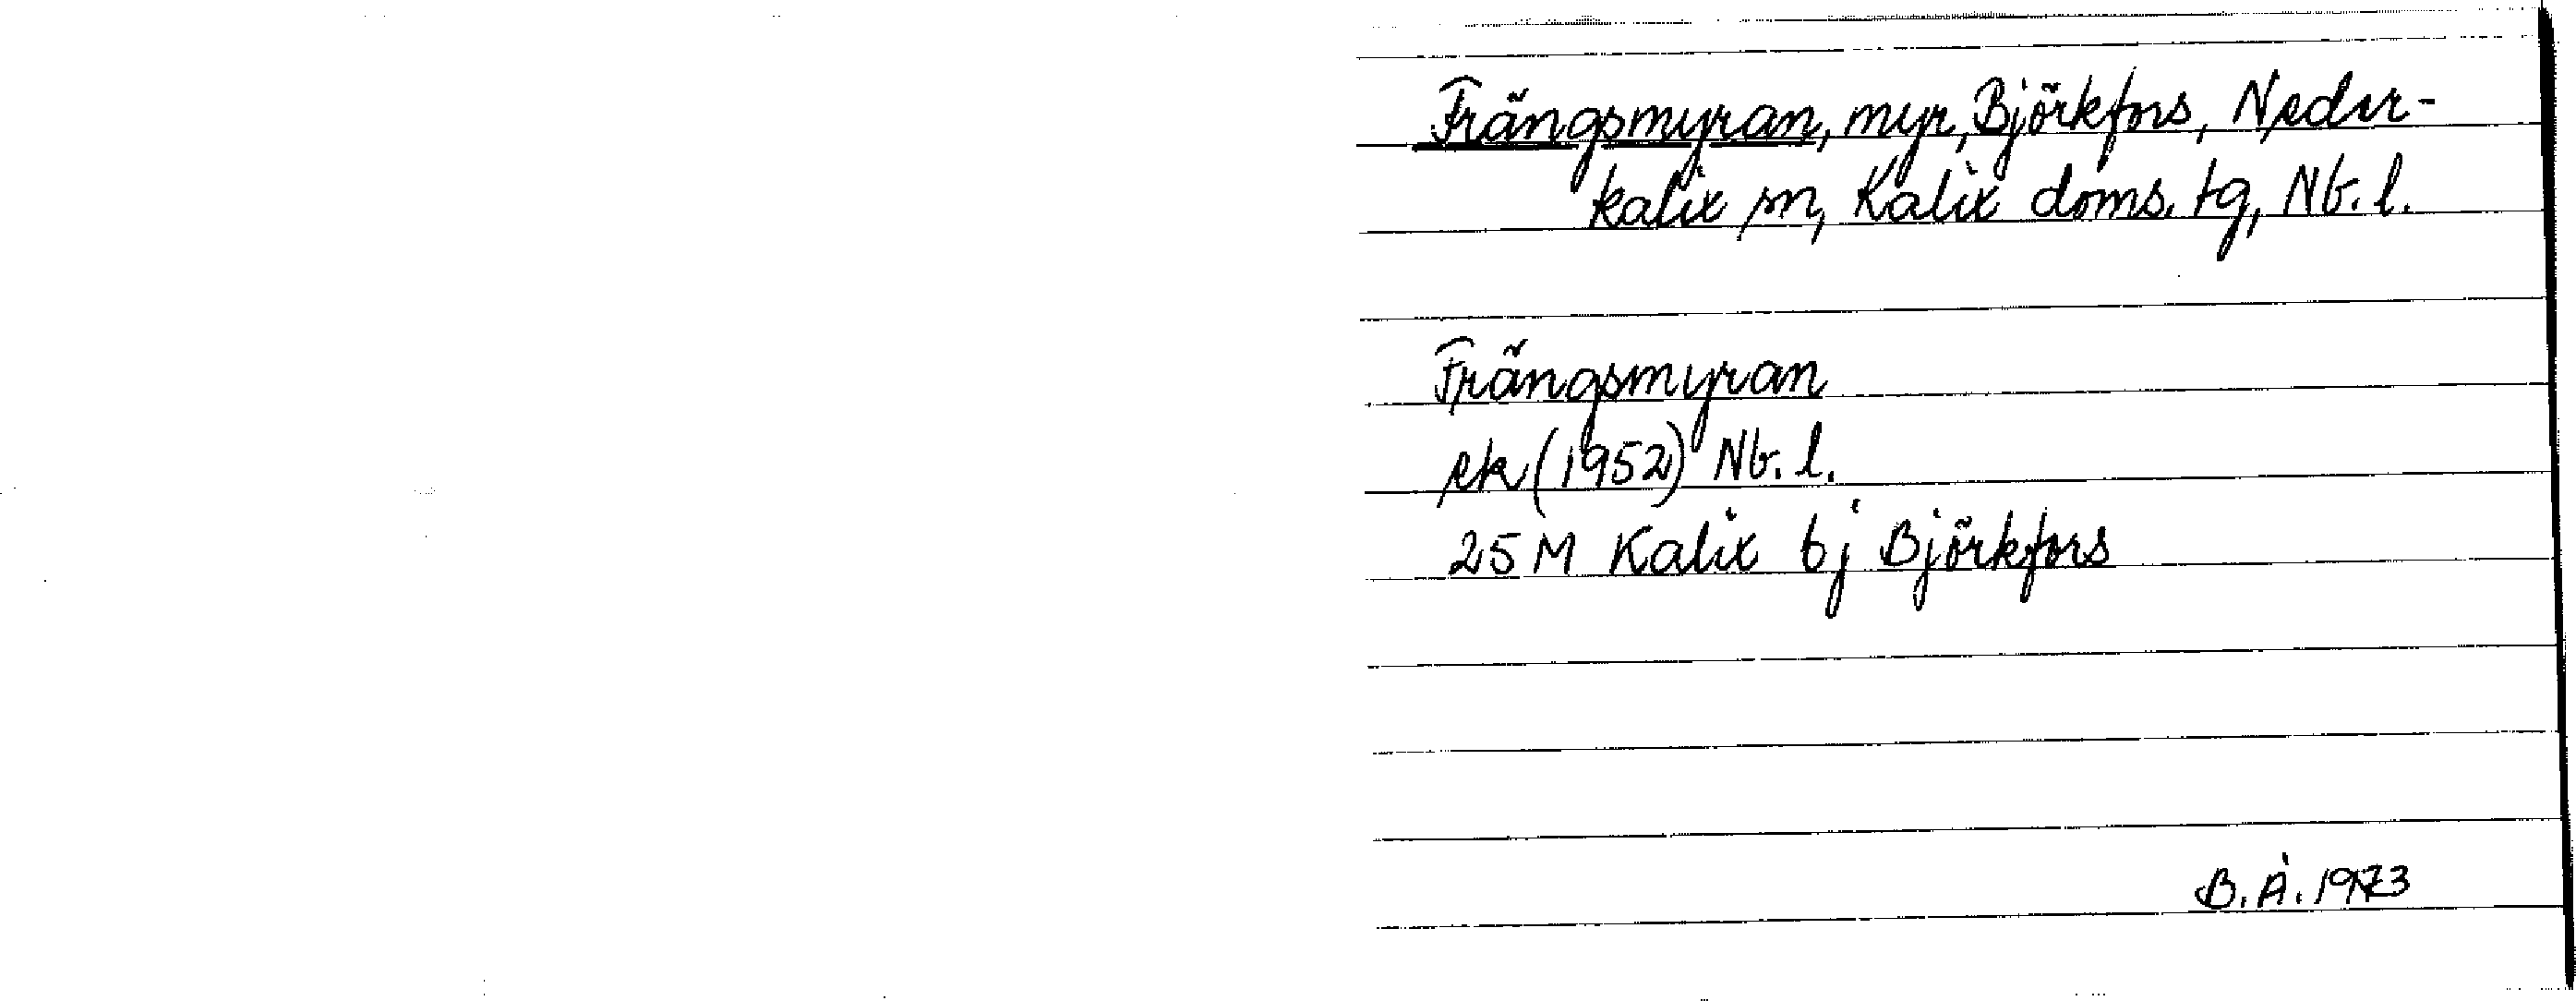 Frängsmyran, myr, Björkfors, Neder-
kalix sn, Kalix doms. tg, Nb. l.
Frängsmyran
ek (1952) Nb. l.
25 M Kalix 6j Björkfors
B. Å. 1973